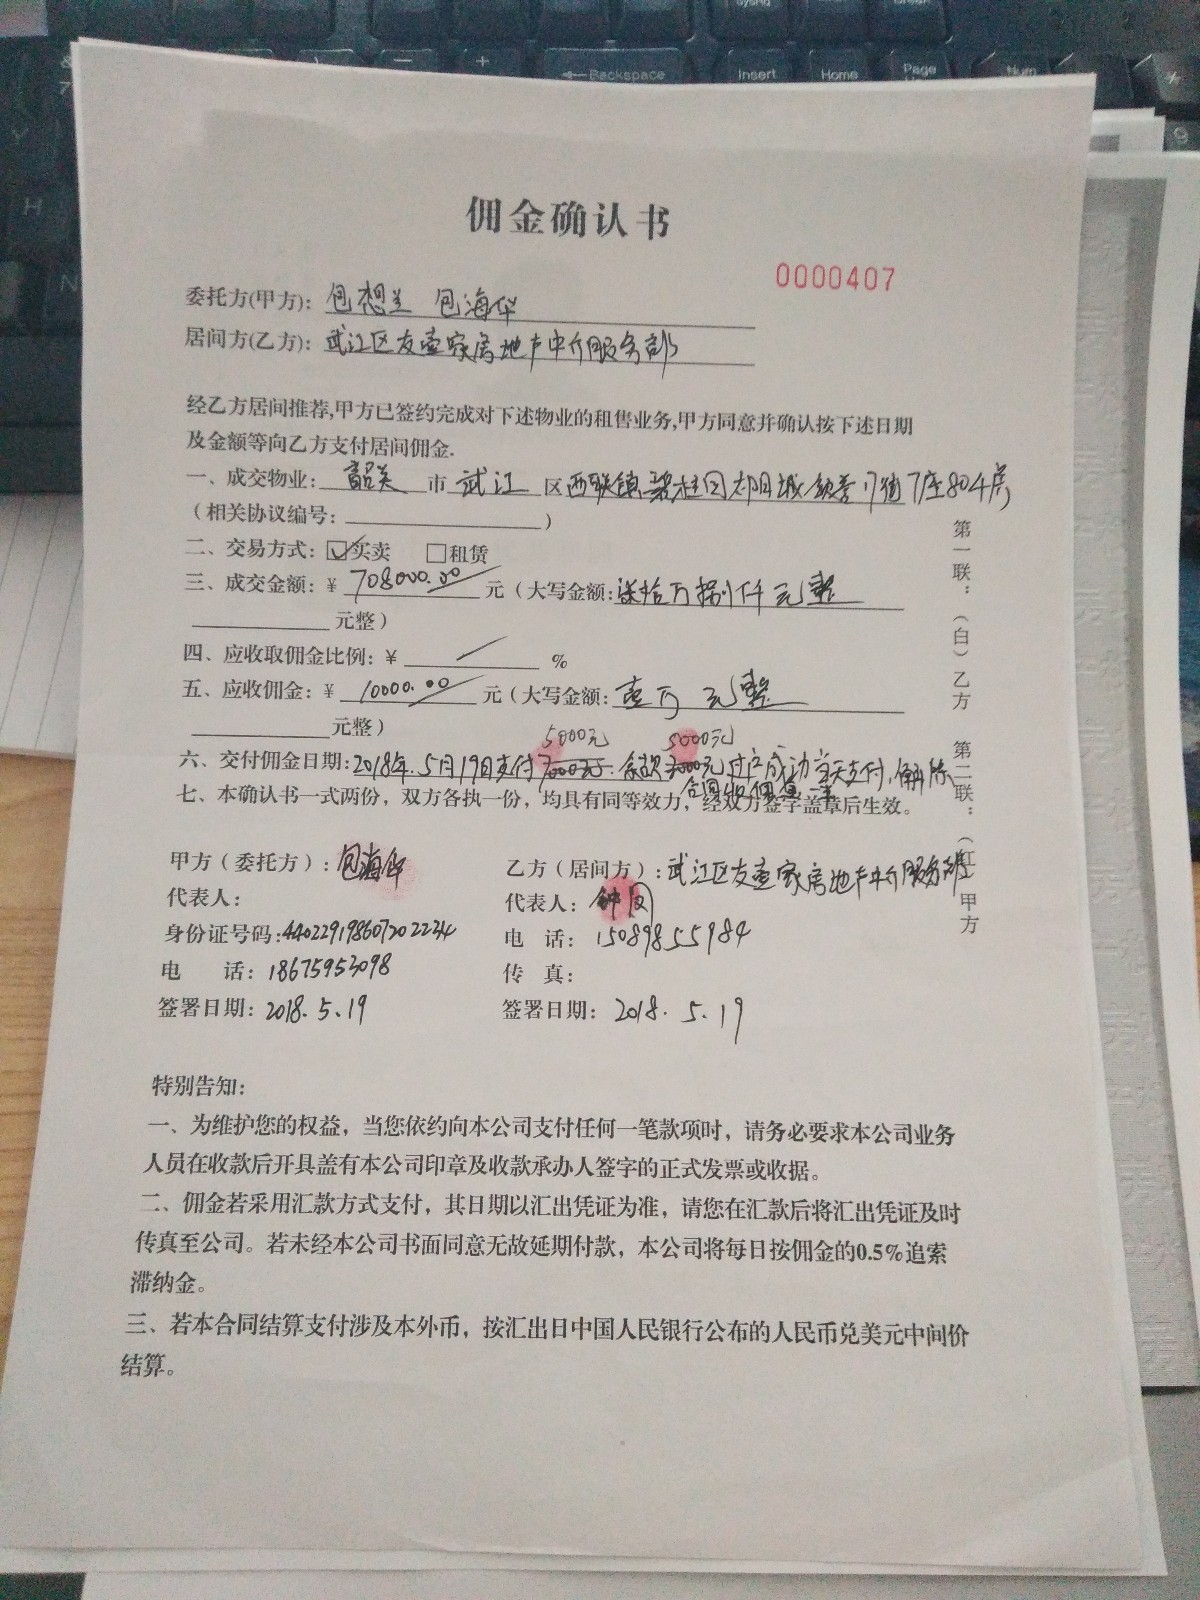 佣金确认书
0000407
委托方(甲方): 包想兰 包海华
居间方(乙方): 武江区友壹家房地产中介服务部
经乙方居间推荐,甲方已签约完成对下述物业的租售业务,甲方同意并确认按下述日期
及金额等向乙方支付居间佣金.
一、成交物业: 韶关 市 武江 区 西联镇碧桂园太阳城 街7座804房
(相关协议编号: )
二、交易方式: ☑买卖 □租赁
三、成交金额: ¥ 708000.00 元(大写金额: 柒拾万捌仟元整
元整)
四、应收取佣金比例: ¥ / %
五、应收佣金: ¥ 10000.00 元(大写金额: 壹万 元整
元整)
5000元 5000元
六、交付佣金日期: 2018年5月19日支付 7000元. 余款 3000元 过户成功当天支付,解除
合同收佣 一半
七、本确认书一式两份，双方各执一份，均具有同等效力，经双方签字盖章后生效。
第一联：（白）乙方 第二联：（红）甲方
甲方（委托方）: 包海华
代表人:
身份证号码: 440229198607202234
电 话: 18675953098
签署日期: 2018.5.19
乙方（居间方）: 武江区友壹家房地产中介服务部
代表人: 钟
电 话: 15089855984
传 真:
签署日期: 2018.5.19
特别告知:
一、为维护您的权益，当您依约向本公司支付任何一笔款项时，请务必要求本公司业务
人员在收款后开具盖有本公司印章及收款承办人签字的正式发票或收据。
二、佣金若采用汇款方式支付，其日期以汇出凭证为准，请您在汇款后将汇出凭证及时
传真至公司。若未经本公司书面同意无故延期付款，本公司将每日按佣金的0.5%追索
滞纳金。
三、若本合同结算支付涉及本外币，按汇出日中国人民银行公布的人民币兑美元中间价
结算。
Backspace
Insert
Home
Page